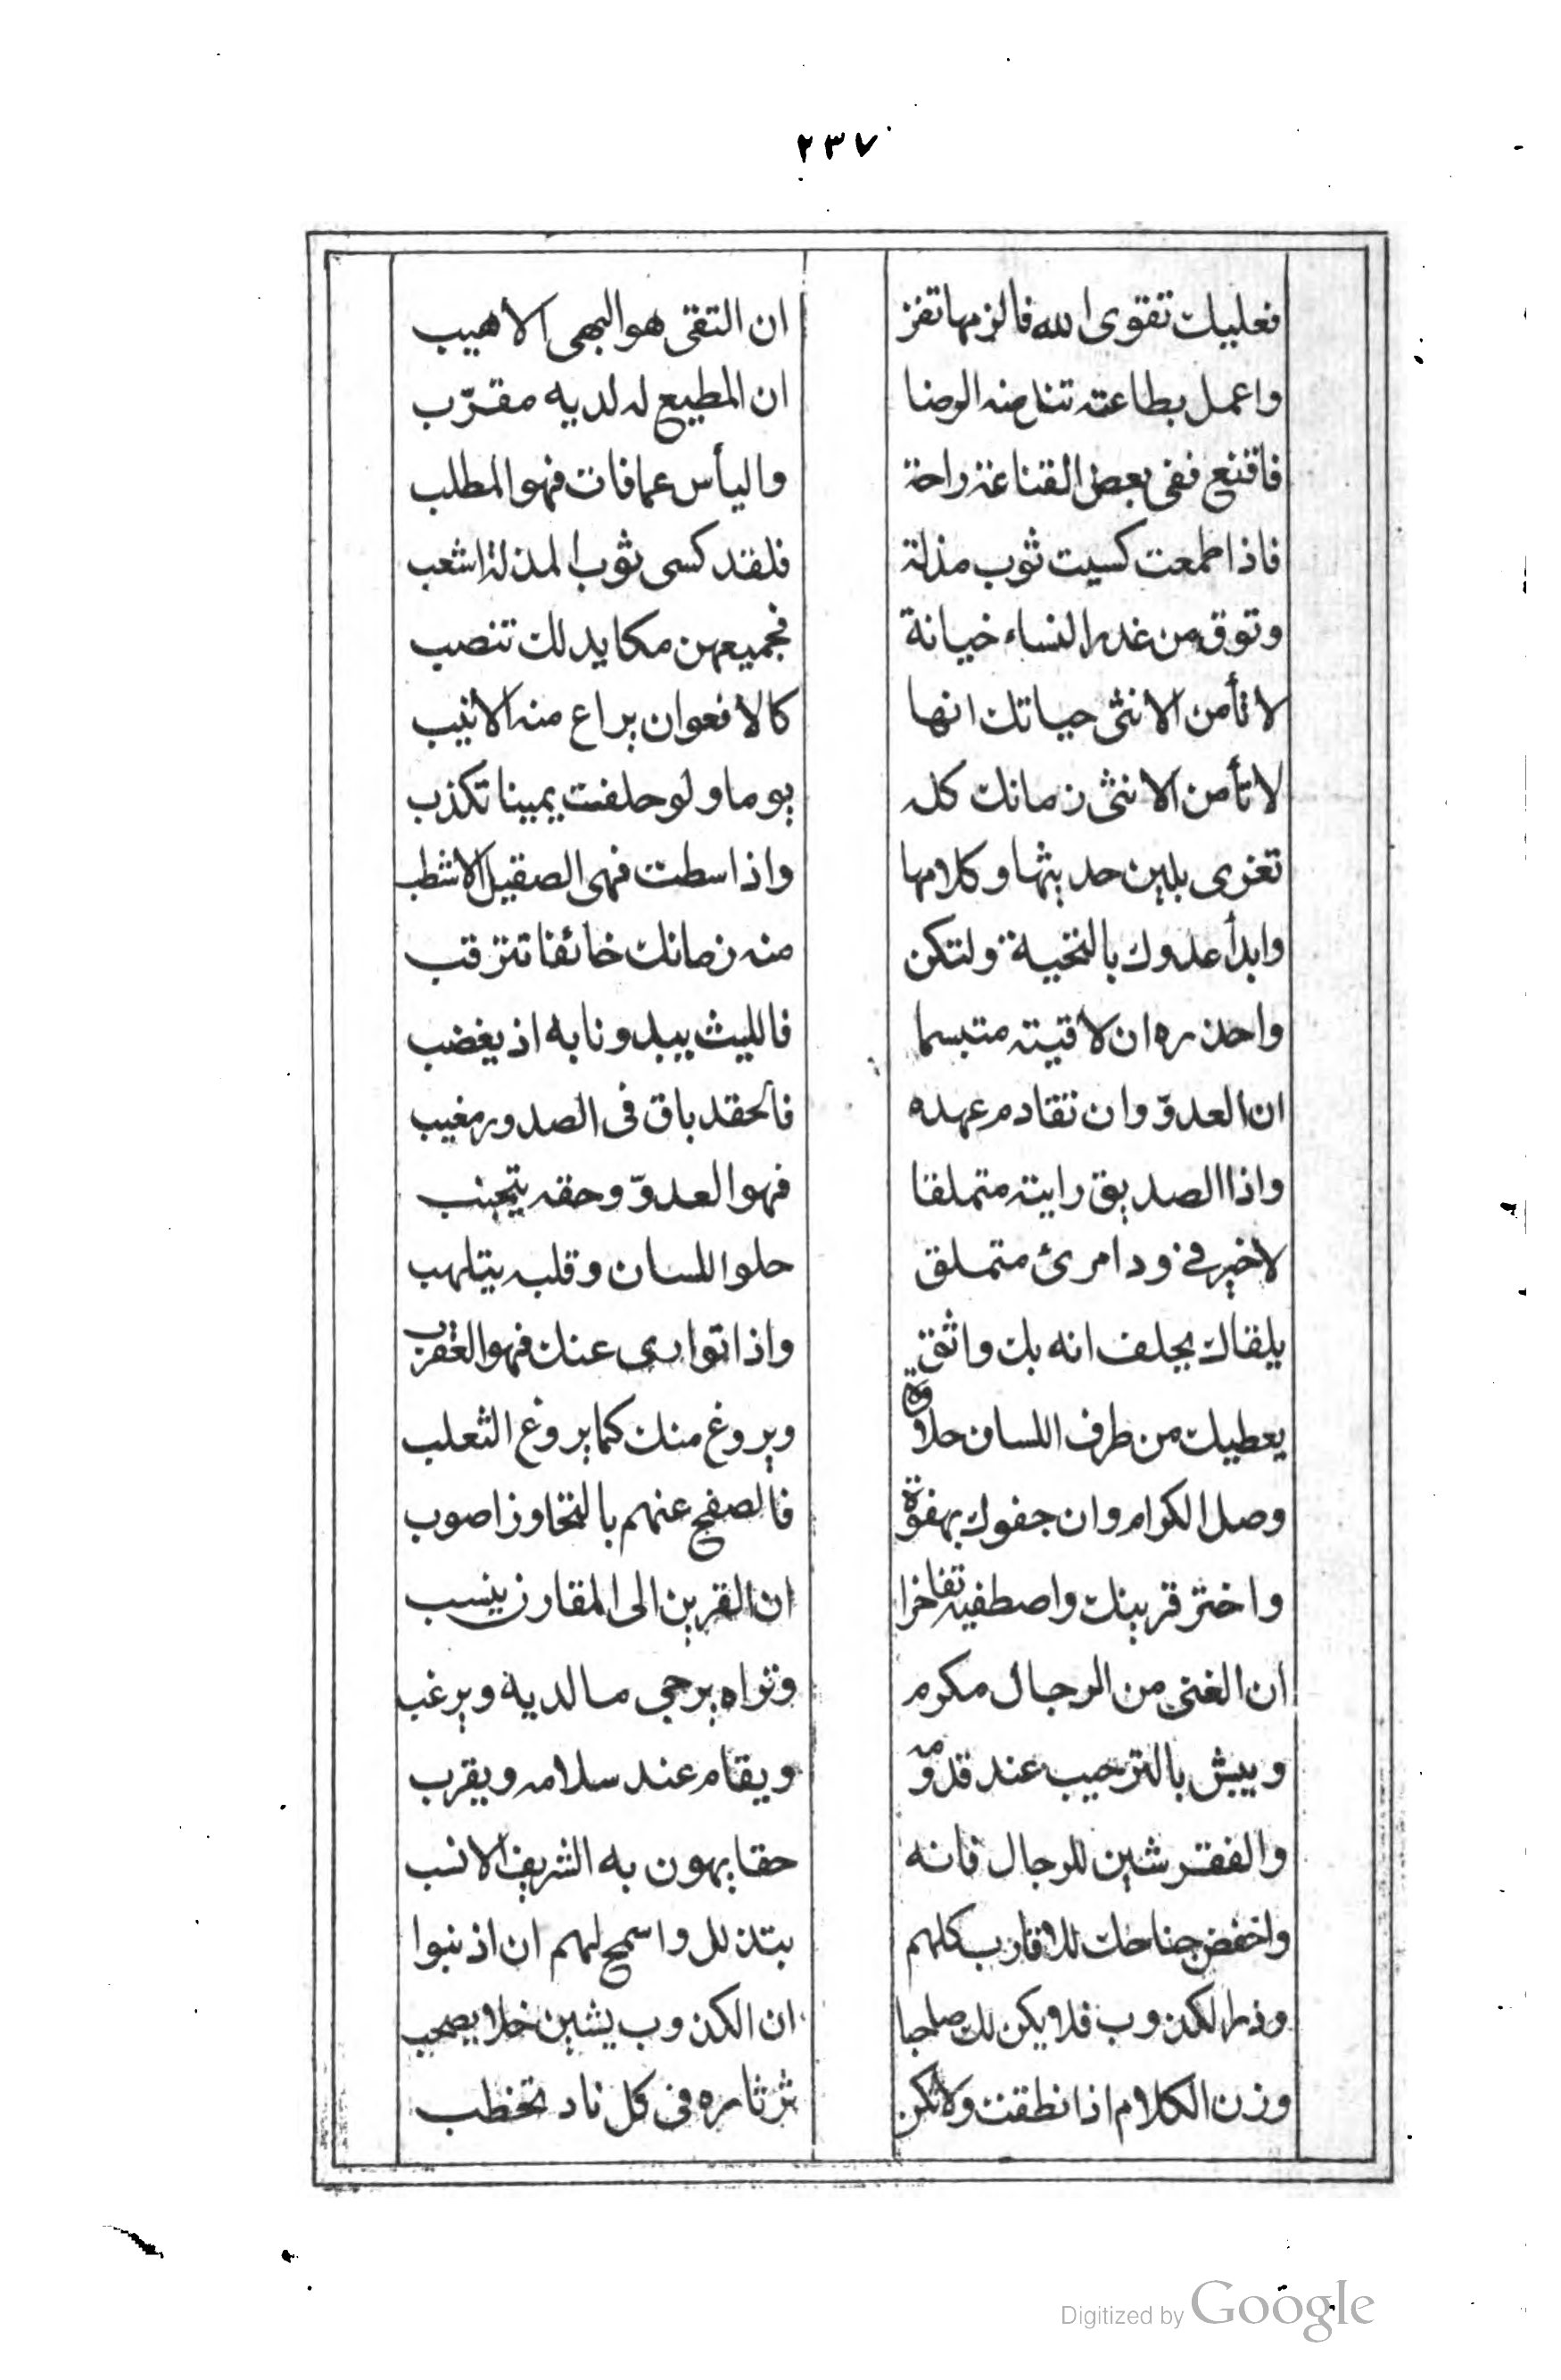 ٢٣٧
فعليك تقوى الله فالزمها تفز ان التقى هو البهى الاهيب
واعمل بطاعته تنل منه الرضا ان المطيع له لديه مقرّب
فاقنع ففى بعض القناعة راحة واليأس عما فات فهو المطلب
فاذا طمعت كسيت ثوب مذلة فلقد كسى ثوب المذلة اشعب
وتوق من غدر النساء خيانة فجميعهن مكايد لك تنصب
لا تأمن الانثى حياتك انها كالافعوان يراع منه الانيب
لا تأمن الانثى زمانك كله يوما ولو حلفت يمينا تكذب
تغرى بلين حديثها وكلامها واذا سطت فهى الصقيل الاشطب
وابدأ عدوك بالتحية ولتكن منه زمانك خائفا تترقب
واحذره ان لاقيته متبسما فالليث يبدو نابه اذ يغضب
ان العدوّ وان تقادم عهده فالحقد باق فى الصدور مغيب
واذا الصديق رايته متملقا فهو العدوّ وحقه يتجنب
لا خير فى ود امرئ متملق حلو اللسان وقلبه يتلهب
يلقاك يحلف انه بك واثق واذا توارى عنك فهو العقرب
يعطيك من طرف اللسان حلاوة ويروغ منك كما يروغ الثعلب
وصل الكرام وان جفوك بهفوة فالصفح عنهم بالتجاوز اصوب
واختر قرينك واصطفيه تفاخرا ان القرين الى المقارن ينسب
ان الغنى من الرجال مكرم وتراه يرجى ما لديه ويرغب
ويبش بالترحيب عند قدومه ويقام عند سلامه ويقرب
والفقر شين للرجال فانه حقا يهون به الشريف الانسب
واخفض جناحك للاقارب كلهم بتذلل واسمح لهم ان اذنبوا
وذر الكذوب فلا يكن لك صاحبا ان الكذوب يشين خلا يصحب
وزن الكلام اذا نطقت ولا تكن ثرثاره فى كل ناد تخطب
Digitized by Google